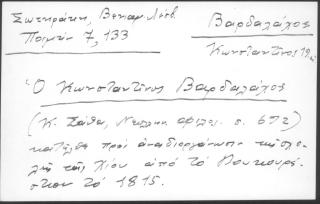 Σωτηράκη, Βεκαρ. Λέσβ.
Ποιμήν 7, 133
Βαρδαλάχος
Κωνσταντῖνος
Ὁ Κωνσταντῖνος Βαρδαλάχος
(Κ. Σάθα, Νεοελλην. φιλολ. σ. 672)
κατῆλθε πρὸς ἀναδιοργάνωσιν τῆς σχο-
λῆς τῆς Χίου ἀπὸ τὸ Βουκουρέ-
στιον τὸ 1815.